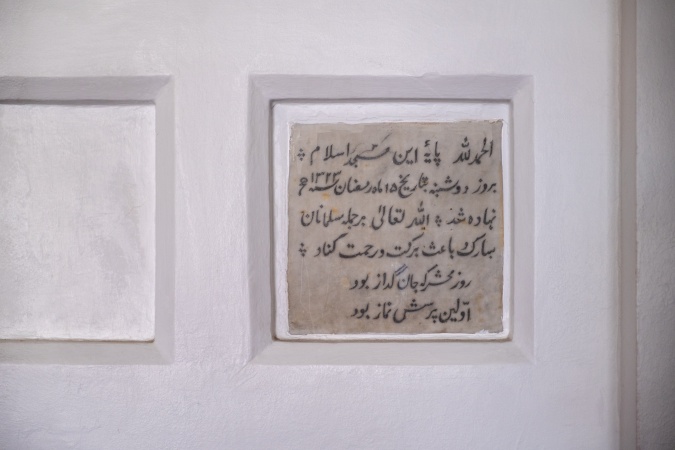 الحمد للہ پایۂ این مسجد اسلام ۞
بروز دوشنبہ بتاریخ ۱۵ ماہ رمضان سنہ ۱۳۲۳ھ
نہادہ شد ۞ اللہ تعالیٰ بر جملہ مسلمانان
مبارک باعث برکت و رحمت کناد ۞
روز محشر کہ جان گداز بود
اوّلین پرسش نماز بود